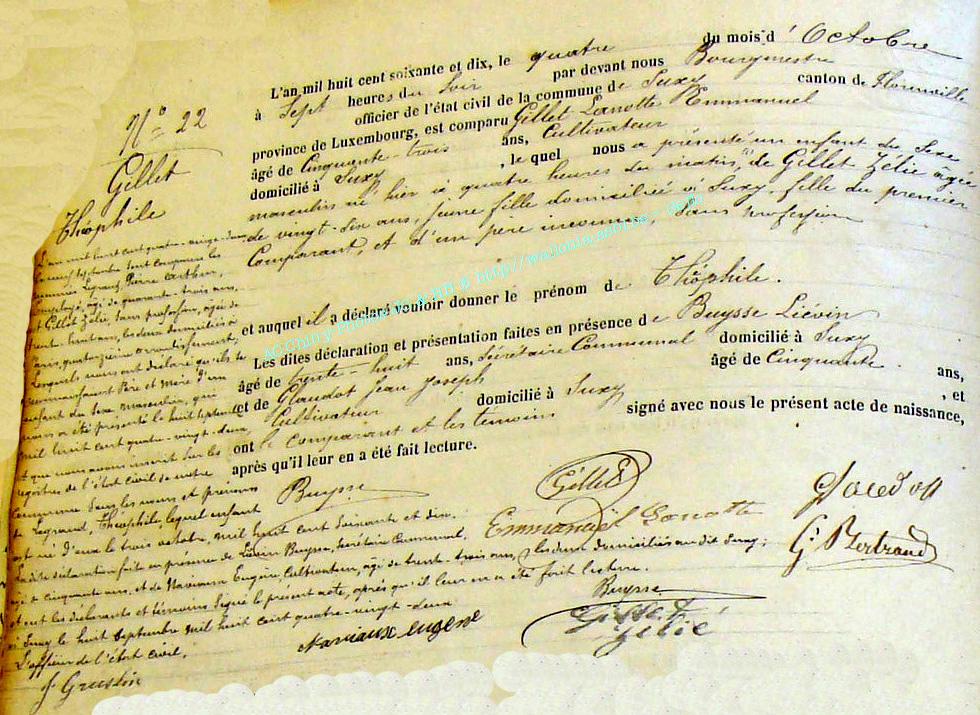 N° 22
Gillet
Théophile
L'an mil huit cent soixante et dix, le quatre du mois d'Octobre
à Sept heures du Soir par devant nous Bourgmestre
officier de l'état civil de la commune de Suxy canton de Florenville
province de Luxembourg, est comparu Gillet Lanotte Emmanuel
âgé de Cinquante-trois ans, Cultivateur
domicilié à Suxy, le quel nous a présenté un enfant du Sexe
masculin né hier à quatre heures du matin, de Gillet Zélie âgée
de vingt-six ans, jeune fille domiciliée à Suxy, fille du premier
Comparant, et d'un père inconnu, Sans profession
et auquel il a déclaré vouloir donner le prénom de Théophile.
Les dites déclaration et présentation faites en présence de Buysse Liévin
âgé de trente-huit ans, Secrétaire Communal domicilié à Suxy
et de Glaudot Jean Joseph âgé de Cinquante ans,
Cultivateur domicilié à Suxy, et
ont le comparant et les témoins signé avec nous le présent acte de naissance,
après qu'il leur en a été fait lecture.
Buysse
Gillet
Emmanuel Lanotte
G. Bertrand
L'an mil huit cent quatre-vingt-deux
le huit Septembre sont comparus les
nommés Legrand, Pierre Arthur,
employé, âgé de quarante-trois ans,
et Gillet Zélie, sans profession, âgée de
trente-huit ans, les deux domiciliés à
arrondissement,
Lesquels nous ont déclaré qu'ils se
reconnaissent Père et Mère d'un
enfant du Sexe masculin, qui
nous a été présenté le huit Septembre
mil huit cent quatre-vingt-deux
et que nous avons inscrit sur les
registres de l'état civil de notre
commune Sous les noms et prénoms
de Legrand, Théophile, lequel enfant
est né d'eux le trois octobre, mil huit cent Soixante et dix.
La dite déclaration faite en présence de Liévin Buysse, Secrétaire Communal,
âgé de cinquante ans, et de Naviaux Eugène, Cultivateur, âgé de trente-trois ans, les deux domiciliés au dit Suxy;
et ont les déclarants et témoins Signé le présent acte, après qu'il leur en a été fait lecture.
à Suxy le huit Septembre mil huit cent quatre-vingt-deux
L'officier de l'état civil,
Buysse
Naviaux eugène
Gillet
Zélie
AC Chiny Photos PL & HB © http://wallonia.asbl.be - 2010